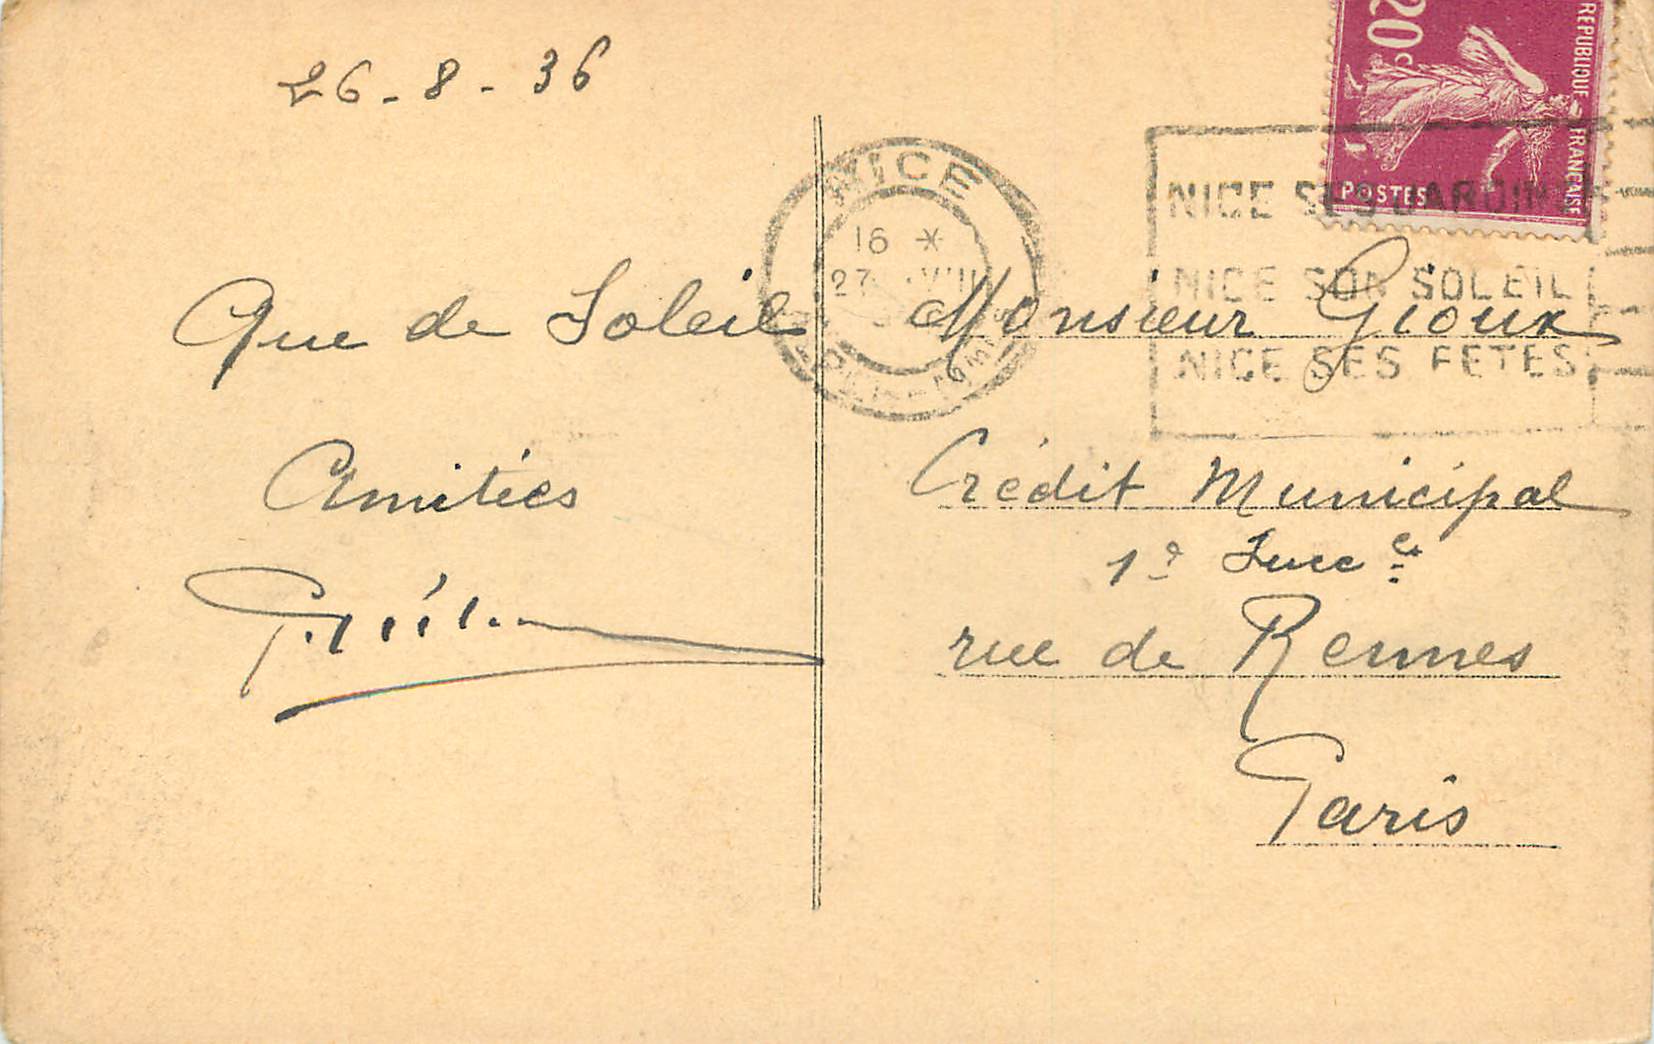 26-8-36
Que de Soleil
Amitiés
20c
REPUBLIQUE FRANÇAISE
POSTES
NICE
16 *
27 VIII
NICE SES JARDINS
NICE SON SOLEIL
NICE SES FETES
Monsieur Gioux
Crédit Municipal
rue de Rennes
Paris